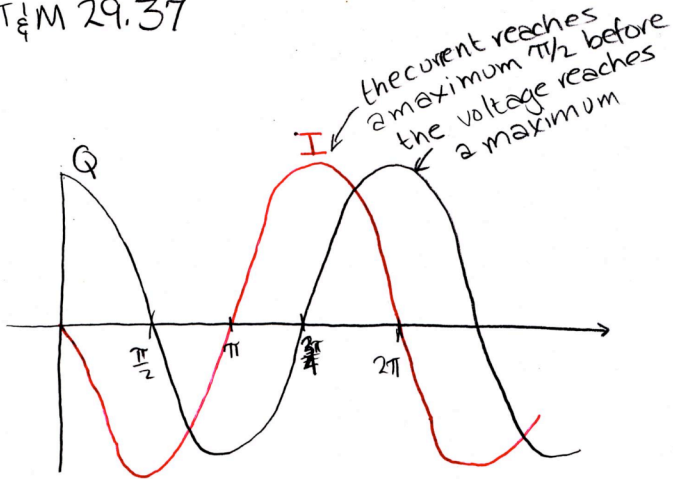 T&M 29.37
the current reaches
a maximum π/2 before
the voltage reaches
a maximum
I
Q
π/2
π
2π